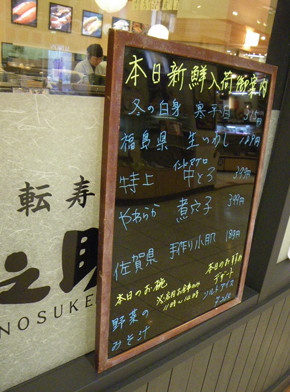 本日新鮮入荷御案内
冬の白身 寒平目
福島県 生いわし
特上 中とろ
やわらか 煮穴子
佐賀県 手作り小肌
本日のお椀
野菜の
みそ汁
本日のおすすめ
デザート
ソルトアイス
転寿
之助
NOSUKE